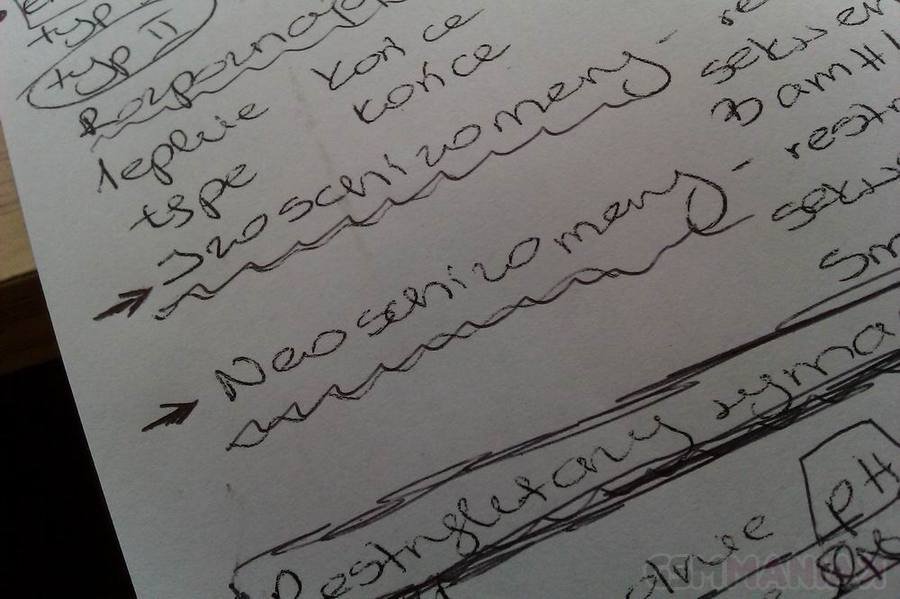 typ
typ II
Rozpoznają
lepkie końce
tępe końce
Izoschizomery - re
sekwen
BamHI
Neoschizomery - restr
sekw
Sm
Restryktazy wyma
pH
GSMMANIAK